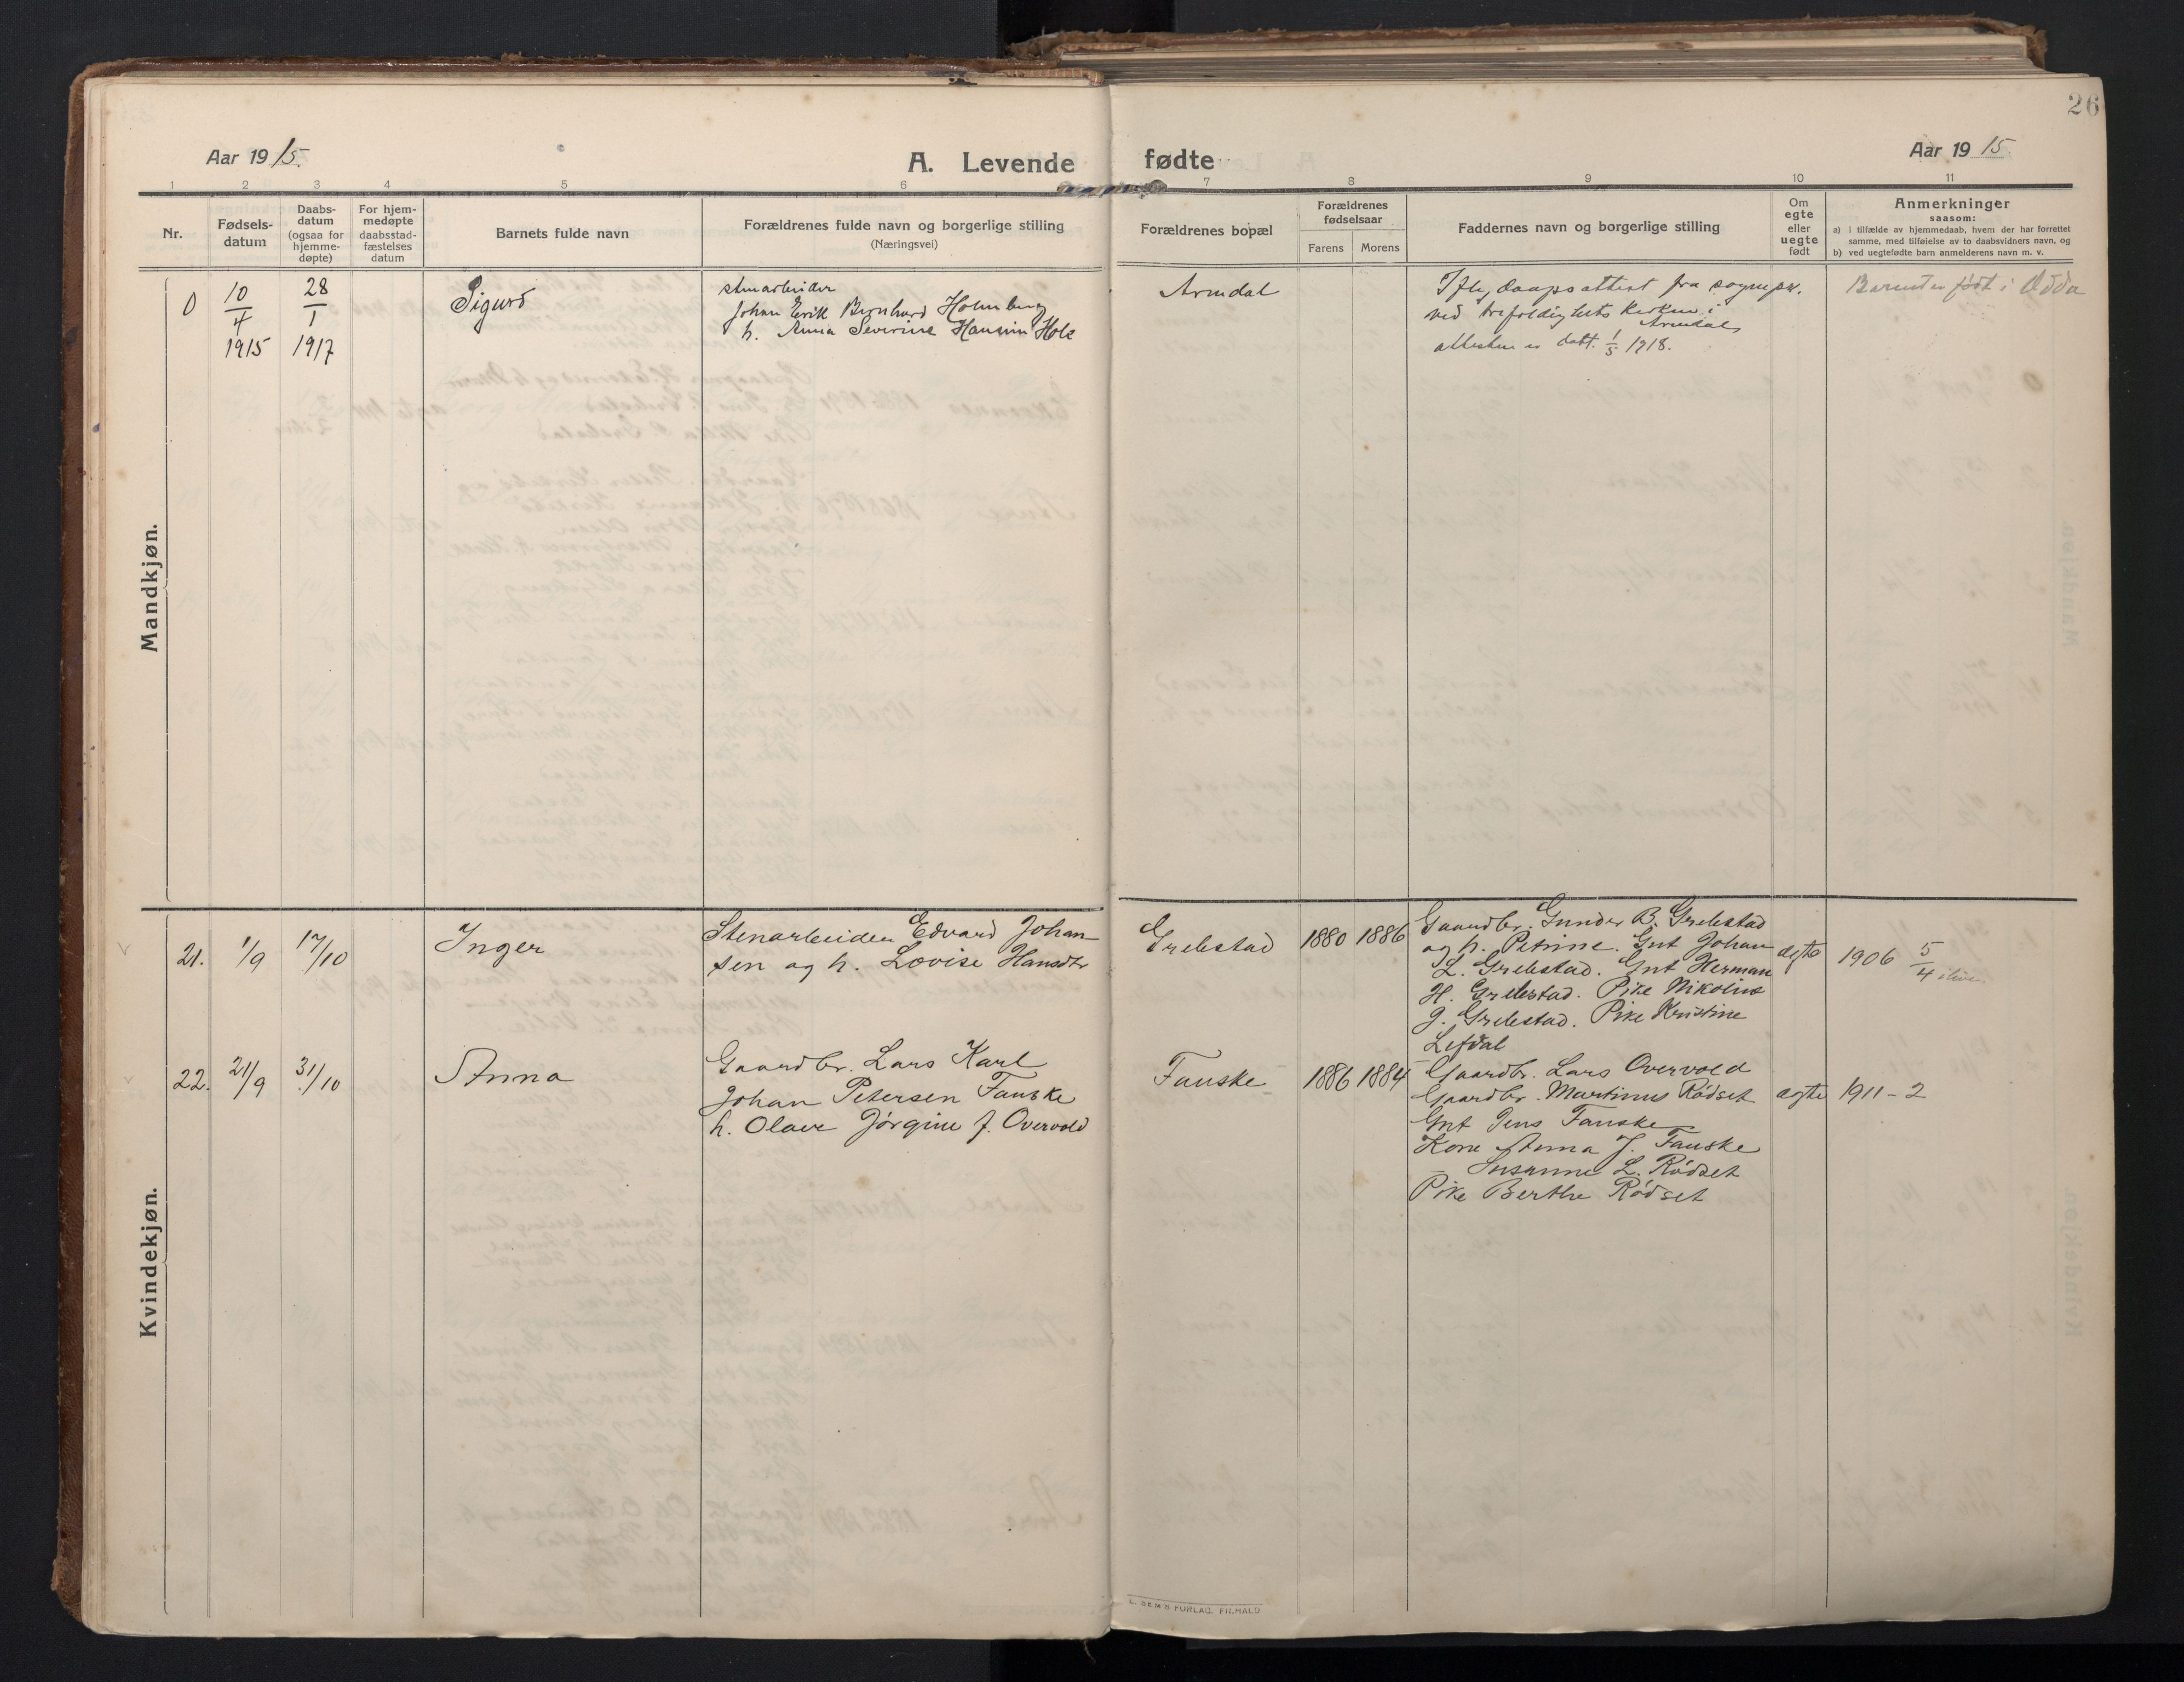 26
Aar 1915.
A. Levende fødte
Aar 1915
1 2 3 4 5 6 7 8 9 10 11
Nr.
Fødsels-
datum
Daabs-
datum
(ogsaa for
hjemme-
døpte)
For hjem-
medøpte
daabsstad-
fæstelses
datum
Barnets fulde navn
Forældrenes fulde navn og borgerlige stilling
(Næringsvei)
Forældrenes bopæl
Forældrenes
fødselsaar
Farens Morens
Faddernes navn og borgerlige stilling
Om
egte
eller
uegte
født
Anmerkninger
saasom:
a) i tilfælde av hjemmedaab, hvem der har forrettet
samme, med tilføielse av to daabsvidners navn, og
b) ved uegtefødte barn anmelderens navn m. v.
Mandkjøn.
0
10/4
1915
28/1
1917
Sigurd
stenarbeider
Johan Erik Bernhard Holmberg
h. Anna Severine Hansen Hole
Arendal
Iflg. daapsattest fra sognepr.
ved trefoldighets kirken i
Arendal,
attesten er datt. 1/5 1918.
Barnet er født i Odda
Kvindekjøn.
21. 1/9 17/10 Inger
Stenarbeider Edvard Johan-
sen og h. Lovise Hansdtr
Grebstad 1880 1886
Gaardbr. Gunder B. Grebstad
og h. Petrine. Gut Johan
L. Grebstad. Gut Herman
H. Grebstad. Pike Nikoline
J. Grebstad. Pike Kristine
Lefdal
egte
1906 5/4 ilive
22. 21/9 31/10 Anna
Gaardbr. Lars Karl
Johan Petersen Fauske
h. Olave Jørgine J. Overvold
Fauske 1886 1884
Gaardbr. Lars Overvold
Gaardbr. Martinus Rødset
Gut Jens Fauske
Kone Anna J. Fauske
— Susanne L. Rødset
Pike Berthe Rødset
egte
1911 - 2
L. SEM'S FORLAG, FR.HALD